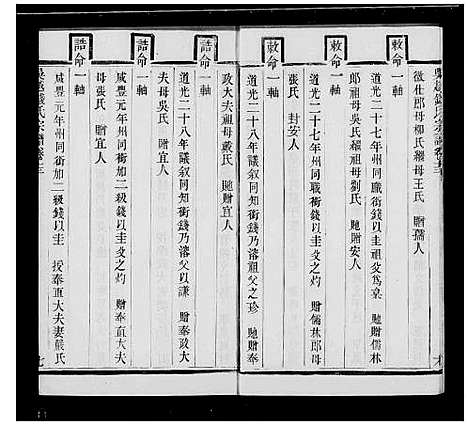 徵仕郎母柳氏繼母王氏 贈孺人
敕命一軸
道光二十七年州同職銜錢以圭父為棠 貤贈儒林
郎祖母吳氏繼祖母劉氏 貤贈安人
敕命一軸
道光二十七年州同職銜錢以圭父之灼 贈儒林郎母
張氏 封安人
敕命一軸
道光二十八年議敘同知銜錢乃濬祖父之珍 貤贈奉
政大夫祖母戴氏 貤贈宜人
誥命一軸
道光二十八年議敘同知銜錢乃濬父以謙 贈奉政大
夫母吳氏 贈宜人
誥命一軸
咸豐元年州同銜加二級錢以圭父之灼 贈奉直大夫
母張氏 贈宜人
誥命一軸
咸豐元年州同銜加二級錢以圭 授奉直大夫妻戴氏
七